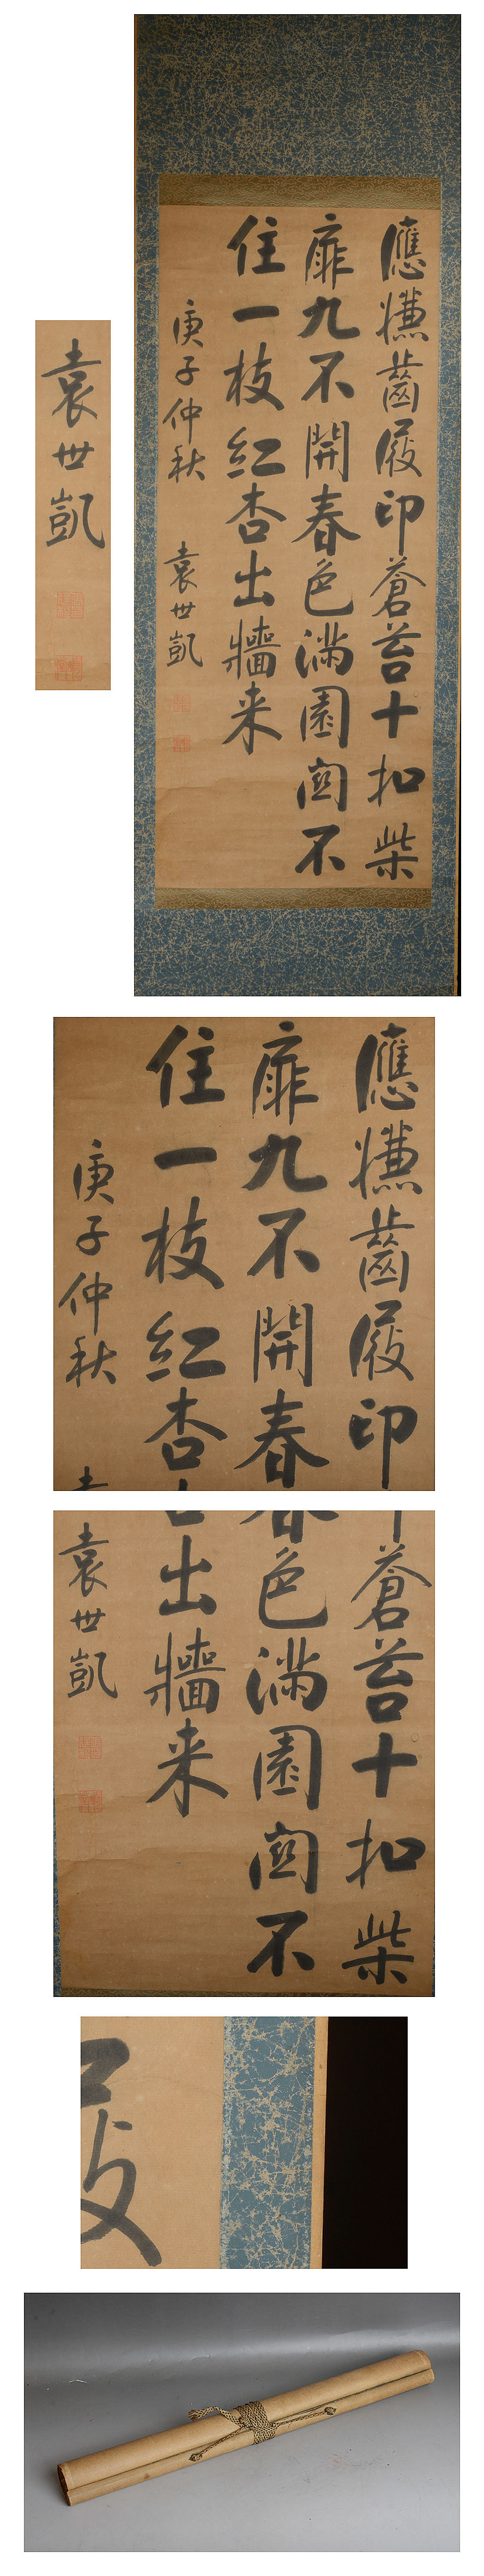 應慊齒屐印蒼苔十扣柴
扉九不開春色滿園關不
住一枝紅杏出牆来
庚子仲秋 袁世凱
袁世凱
應慊齒屐印
扉九不開春
住一枝紅杏
庚子仲秋
蒼苔十扣柴
色滿園關不
出牆来
袁世凱